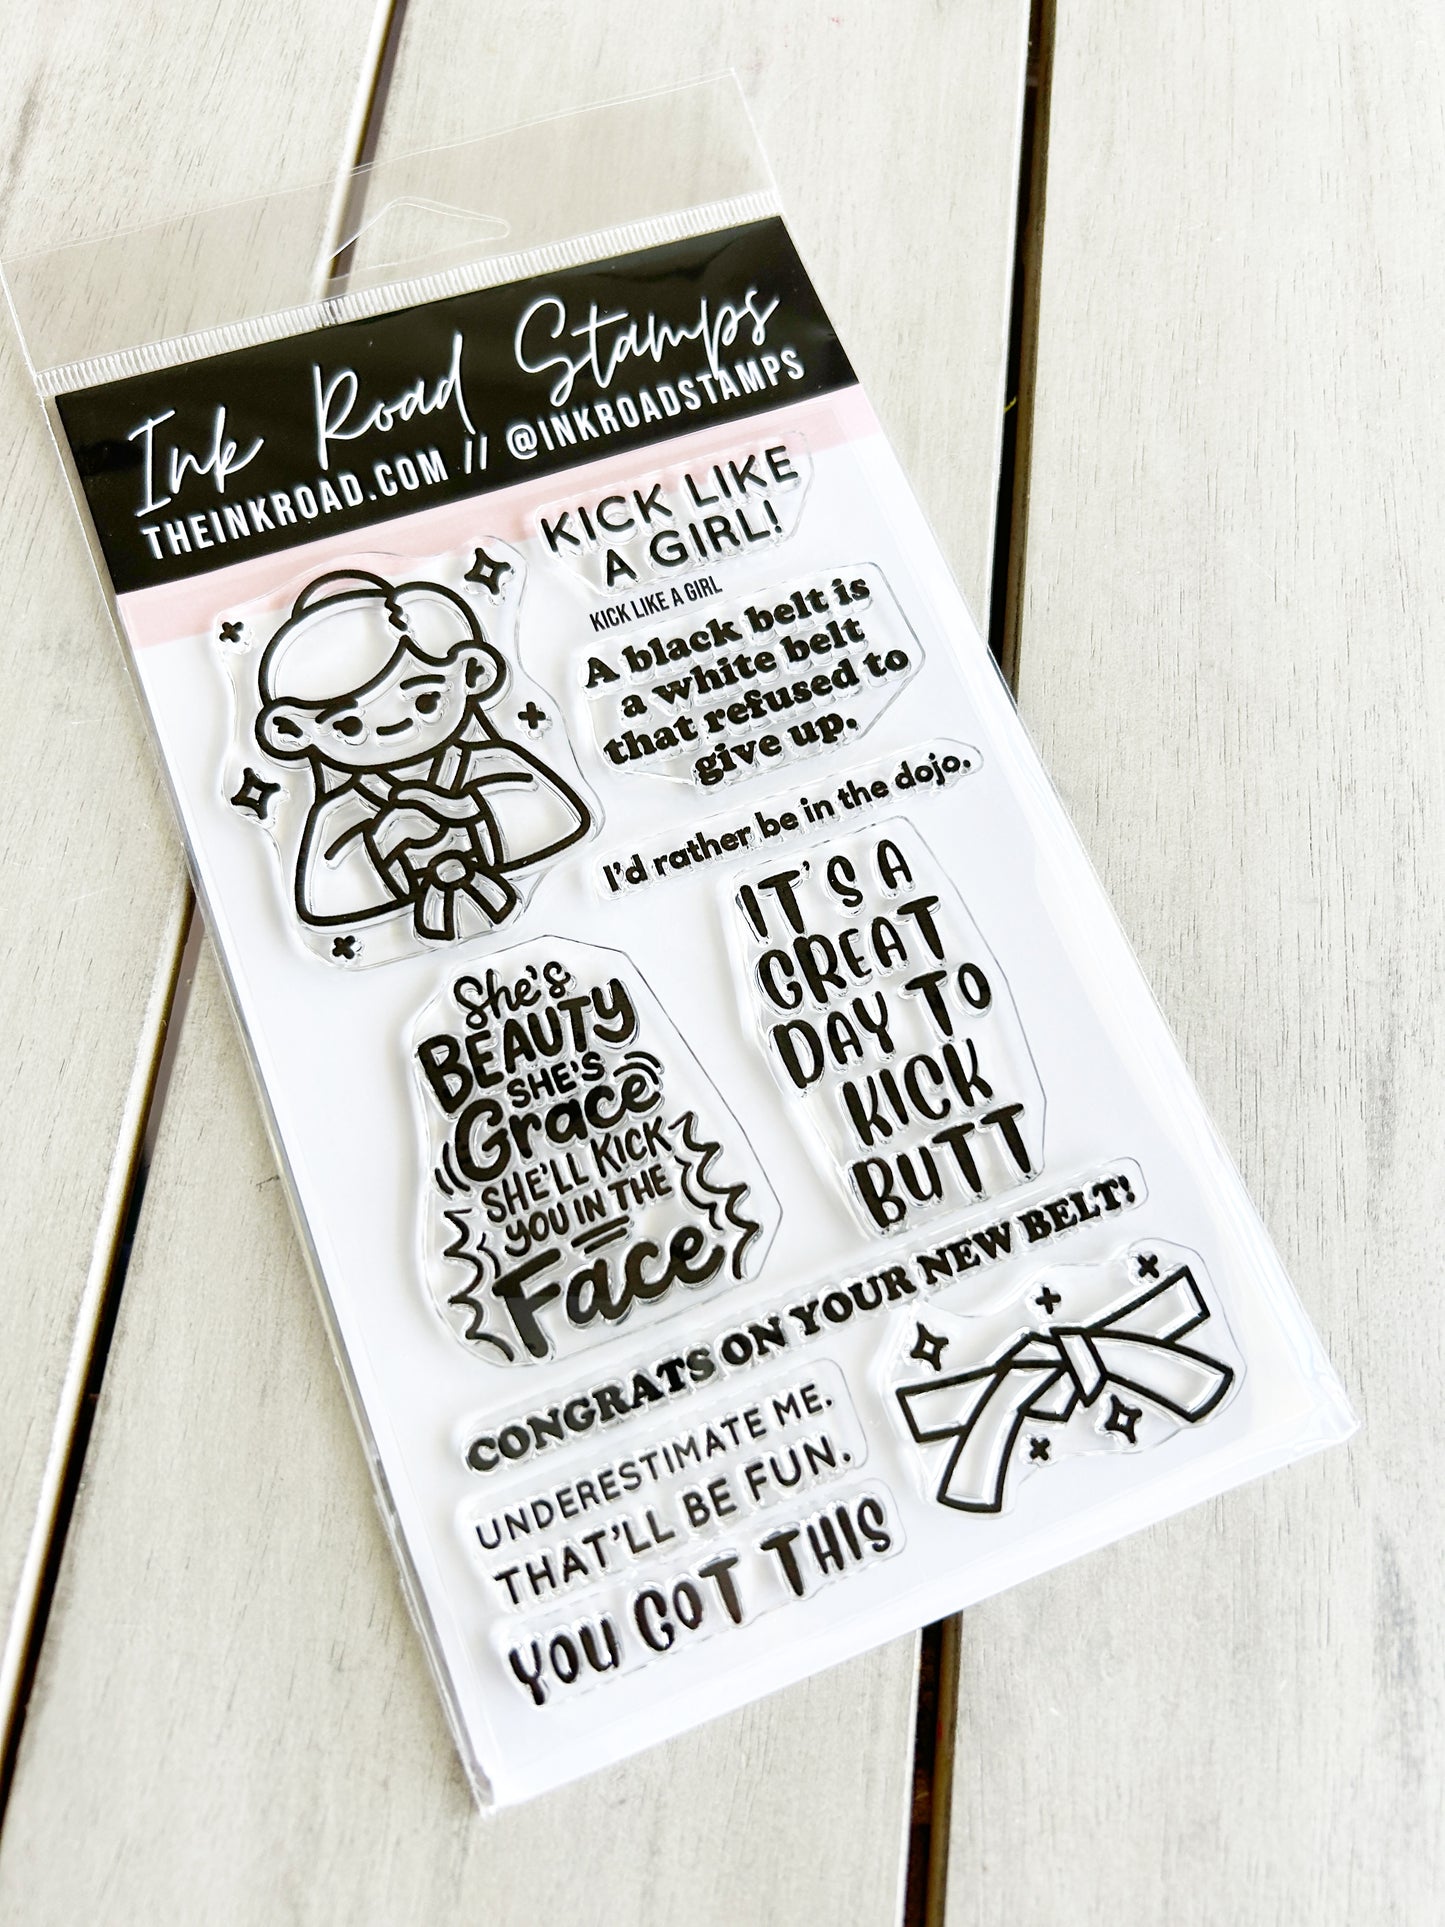 Ink Road Stamps
THEINKROAD.COM // @INKROADSTAMPS
KICK LIKE
A GIRL!
KICK LIKE A GIRL
A black belt is
a white belt
that refused to
give up.
I'd rather be in the dojo.
IT'S A
GREAT
DAY TO
KICK
BUTT
She's
BEAUTY
SHE'S
Grace
SHE'LL KICK
YOU IN THE
Face
CONGRATS ON YOUR NEW BELT!
UNDERESTIMATE ME.
THAT'LL BE FUN.
YOU GOT THIS